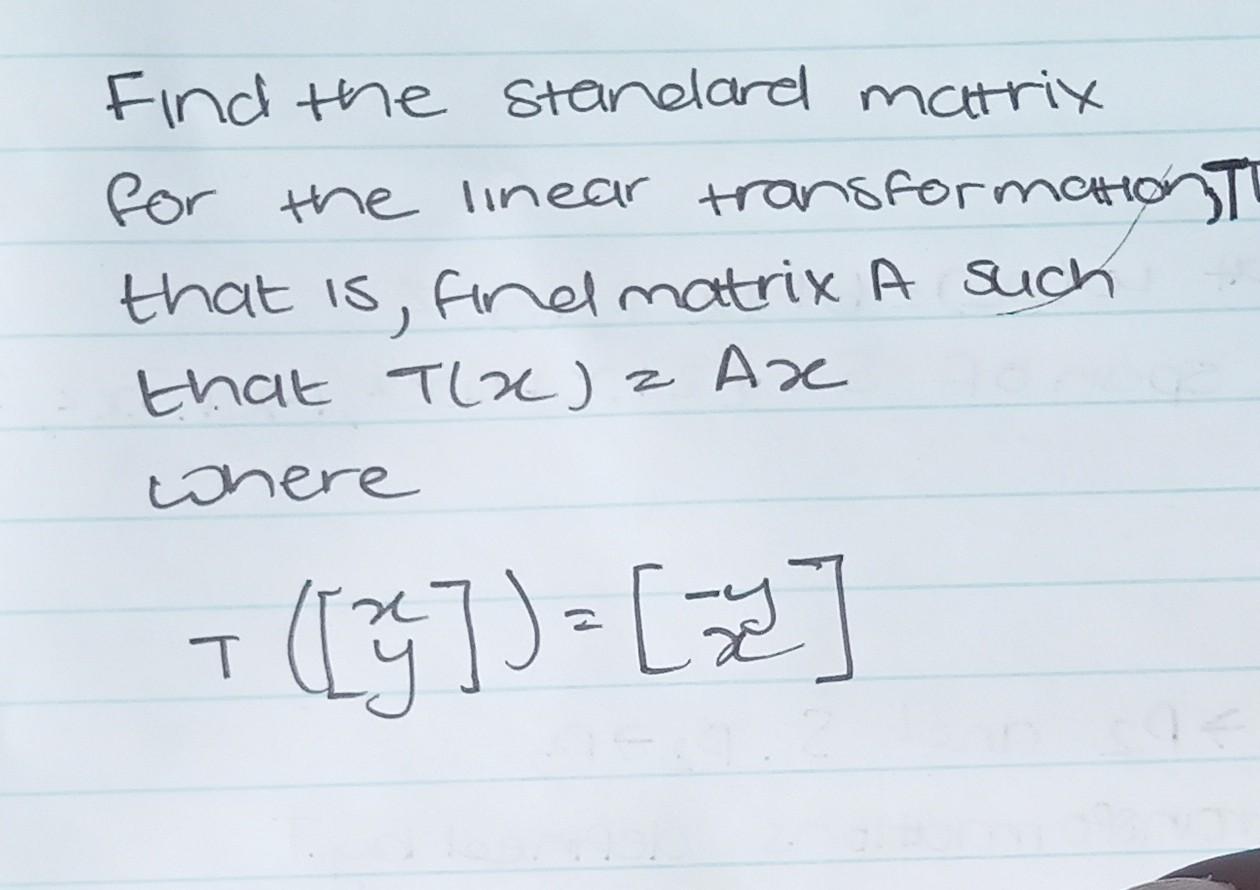 Find the standard matrix
for the linear transformation, T
that is, find matrix A such
that T(x) = Ax
where
T ([x y]) = [-y x]